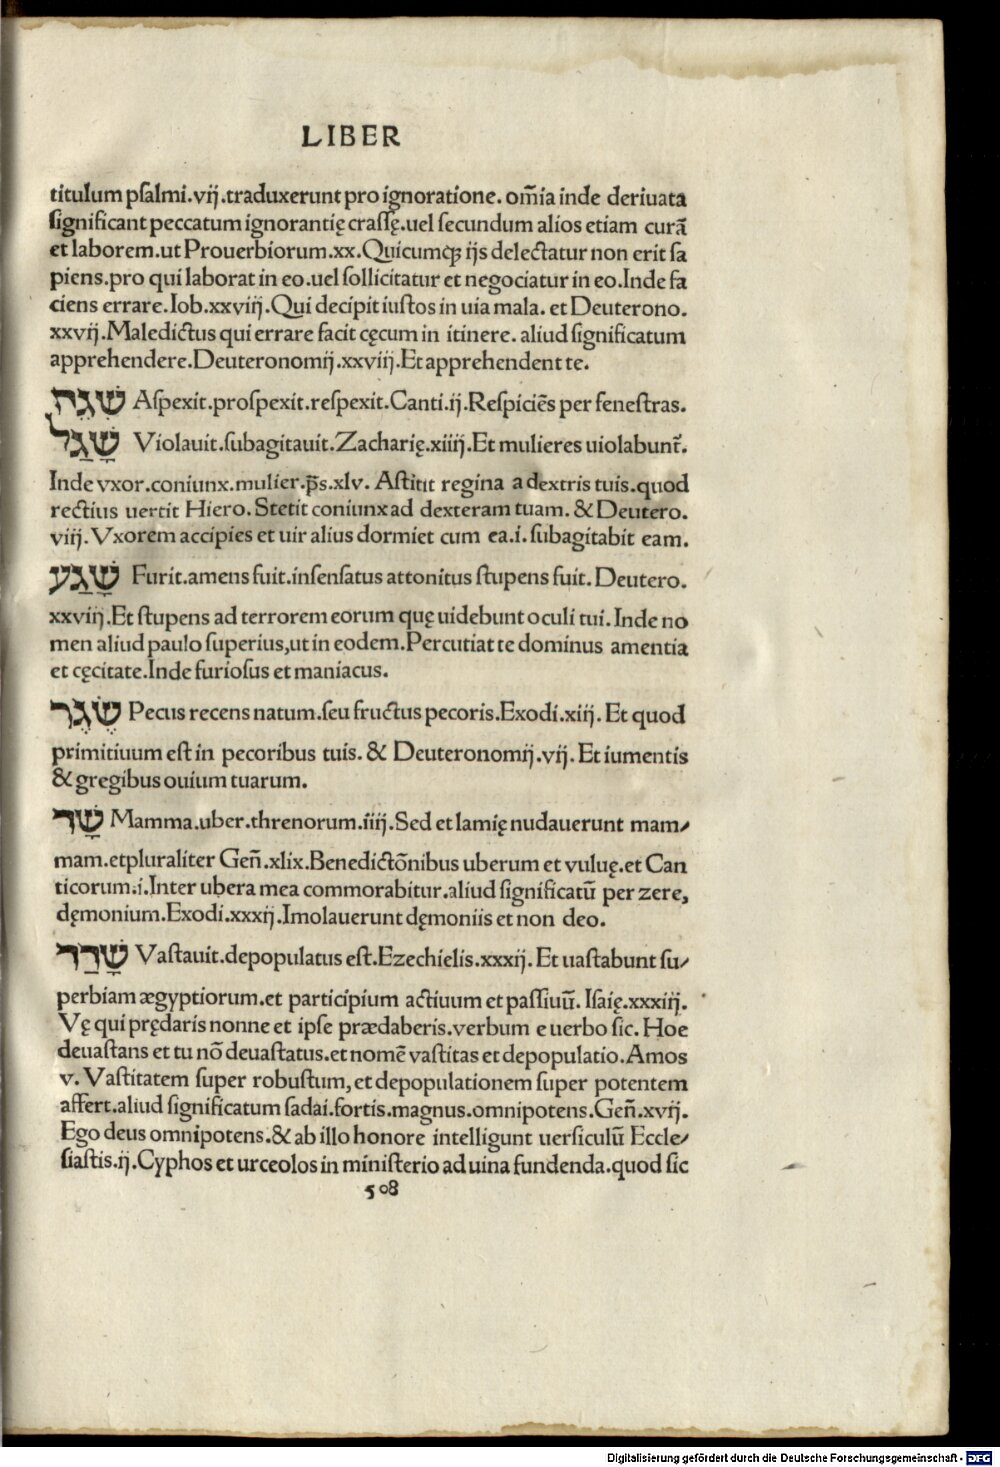 LIBER
titulum psalmi.vij.traduxerunt pro ignoratione. om̄ia inde deriuata
significant peccatum ignorantię crassę.uel secundum alios etiam curā
et laborem.ut Prouerbiorum.xx.Quicumqꝫ ijs delectatur non erit sa
piens.pro qui laborat in eo.uel sollicitatur et negociatur in eo.Inde fa
ciens errare.Iob.xxviij.Qui decipit iustos in uia mala. et Deuterono.
xxvij.Maledictus qui errare facit cęcum in itinere. aliud significatum
apprehendere.Deuteronomij.xxviij.Et apprehendent te.
שָׁגֶח Aspexit.prospexit.respexit.Canti.ij.Respiciēs per fenestras.
שָׁגַל Violauit.subagitauit.Zacharię.xiiij.Et mulieres uiolabunt̄.
Inde vxor.coniunx.mulier.p̄s.xlv. Astitit regina a dextris tuis.quod
rectius uertit Hiero.Stetit coniunx ad dexteram tuam.&Deutero.
viij.Vxorem accipies et uir alius dormiet cum ea.i.subagitabit eam.
שָׁגַע Furit.amens fuit.insensatus attonitus stupens fuit.Deutero.
xxviij.Et stupens ad terrorem eorum quę uidebunt oculi tui.Inde no
men aliud paulo superius,ut in eodem.Percutiat te dominus amentia
et cęcitate.Inde furiosus et maniacus.
שֶׁגֶר Pecus recens natum.seu fructus pecoris.Exodi.xiij. Et quod
primitiuum est in pecoribus tuis. & Deuteronomij.vij. Et iumentis
&gregibus ouium tuarum.
שָׁד Mamma.uber.threnorum.iiij.Sed et lamię nudauerunt mam/
mam.etpluraliter Geñ.xlix.Benedictōnibus uberum et vuluę.et Can
ticorum.i.Inter ubera mea commorabitur.aliud significatū per zere,
dęmonium.Exodi.xxxij.Imolauerunt dęmoniis et non deo.
שָׁדַד Vastauit.depopulatus est.Ezechielis.xxxij. Et uastabunt su/
perbiam ægyptiorum.et participium actiuum et passiuū. Isaię.xxxiij.
Vę qui prędaris nonne et ipse prædaberis.verbum e uerbo sic. Hoe
deuastans et tu nō deuastatus.et nomē vastitas et depopulatio.Amos
v. Vastitatem super robustum,et depopulationem super potentem
affert.aliud significatum sadai.fortis.magnus.omnipotens.Geñ.xvij.
Ego deus omnipotens.&ab illo honore intelligunt uersiculū Eccle/
siastis.ij.Cyphos et urceolos in ministerio ad uina fundenda.quod sic
508
Digitalisierung gefördert durch die Deutsche Forschungsgemeinschaft - DFG